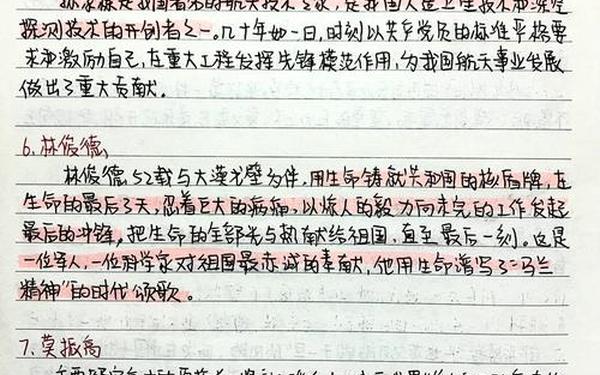 孙家栋是我国著名的航天技术专家,是我国人造卫星技术和深空
探测技术的开创者之一。几十年如一日,时刻以共产党员的标准严格要
求和激励自己,在重大工程发挥先锋模范作用,为我国航天事业发展
做出了重大贡献.
6.林俊德、
林俊德,52载与大漠戈壁为伴,用生命铸就共和国的核盾牌,在
生命的最后3天,忍着巨大的病痛,以惊人的毅力向未完的工作发起
最后的冲锋,把生命的全部光与热献给祖国,直至最后一刻。这是
一位军人,一位科学家对祖国最赤诚的奉献,他用生命谱写了"马兰
精神"的时代颂歌。
7.莫振高